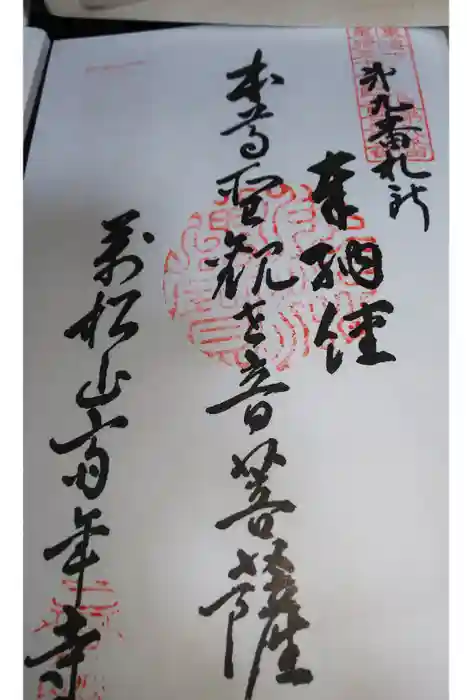 第九番札所
奉納経
本尊聖観世音菩薩
萬松山斉年寺